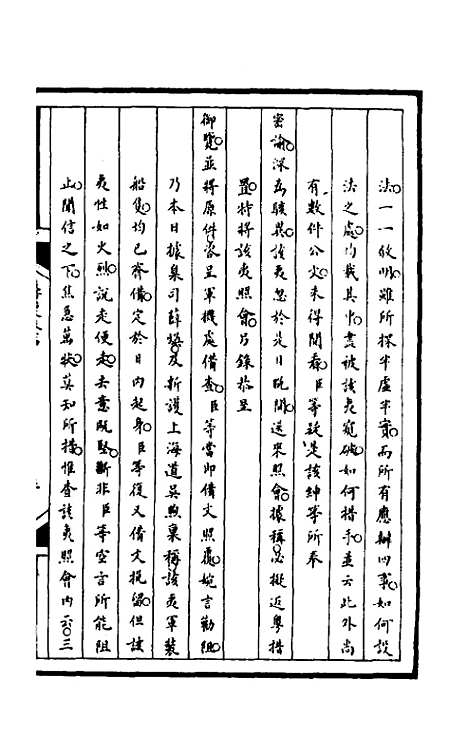 法一一敘明雖所採半虛半實而所有應辦四事如何設
法之處均載其中盡被該夷窺破如何措手並云此外尚
有數件公文未得開看臣等疑是該紳等所奉
密諭深為駭異該夷忽於是日既閒送來照會據稱必擬近粵措
置特將該夷照會另錄恭呈
御覽並將原件咨呈軍機處備查臣等當即備文照覆婉言勸阻
乃本日據臬司薛煥及新護上海道吳煦稟稱該夷軍裝
船隻均已齊備定於日內起身臣等復又備文挽留但該
夷性如火烈說走便走去意既堅斷非臣等空言所能阻
止聞信之下焦急萬狀莫知所措惟查該夷照會內云三